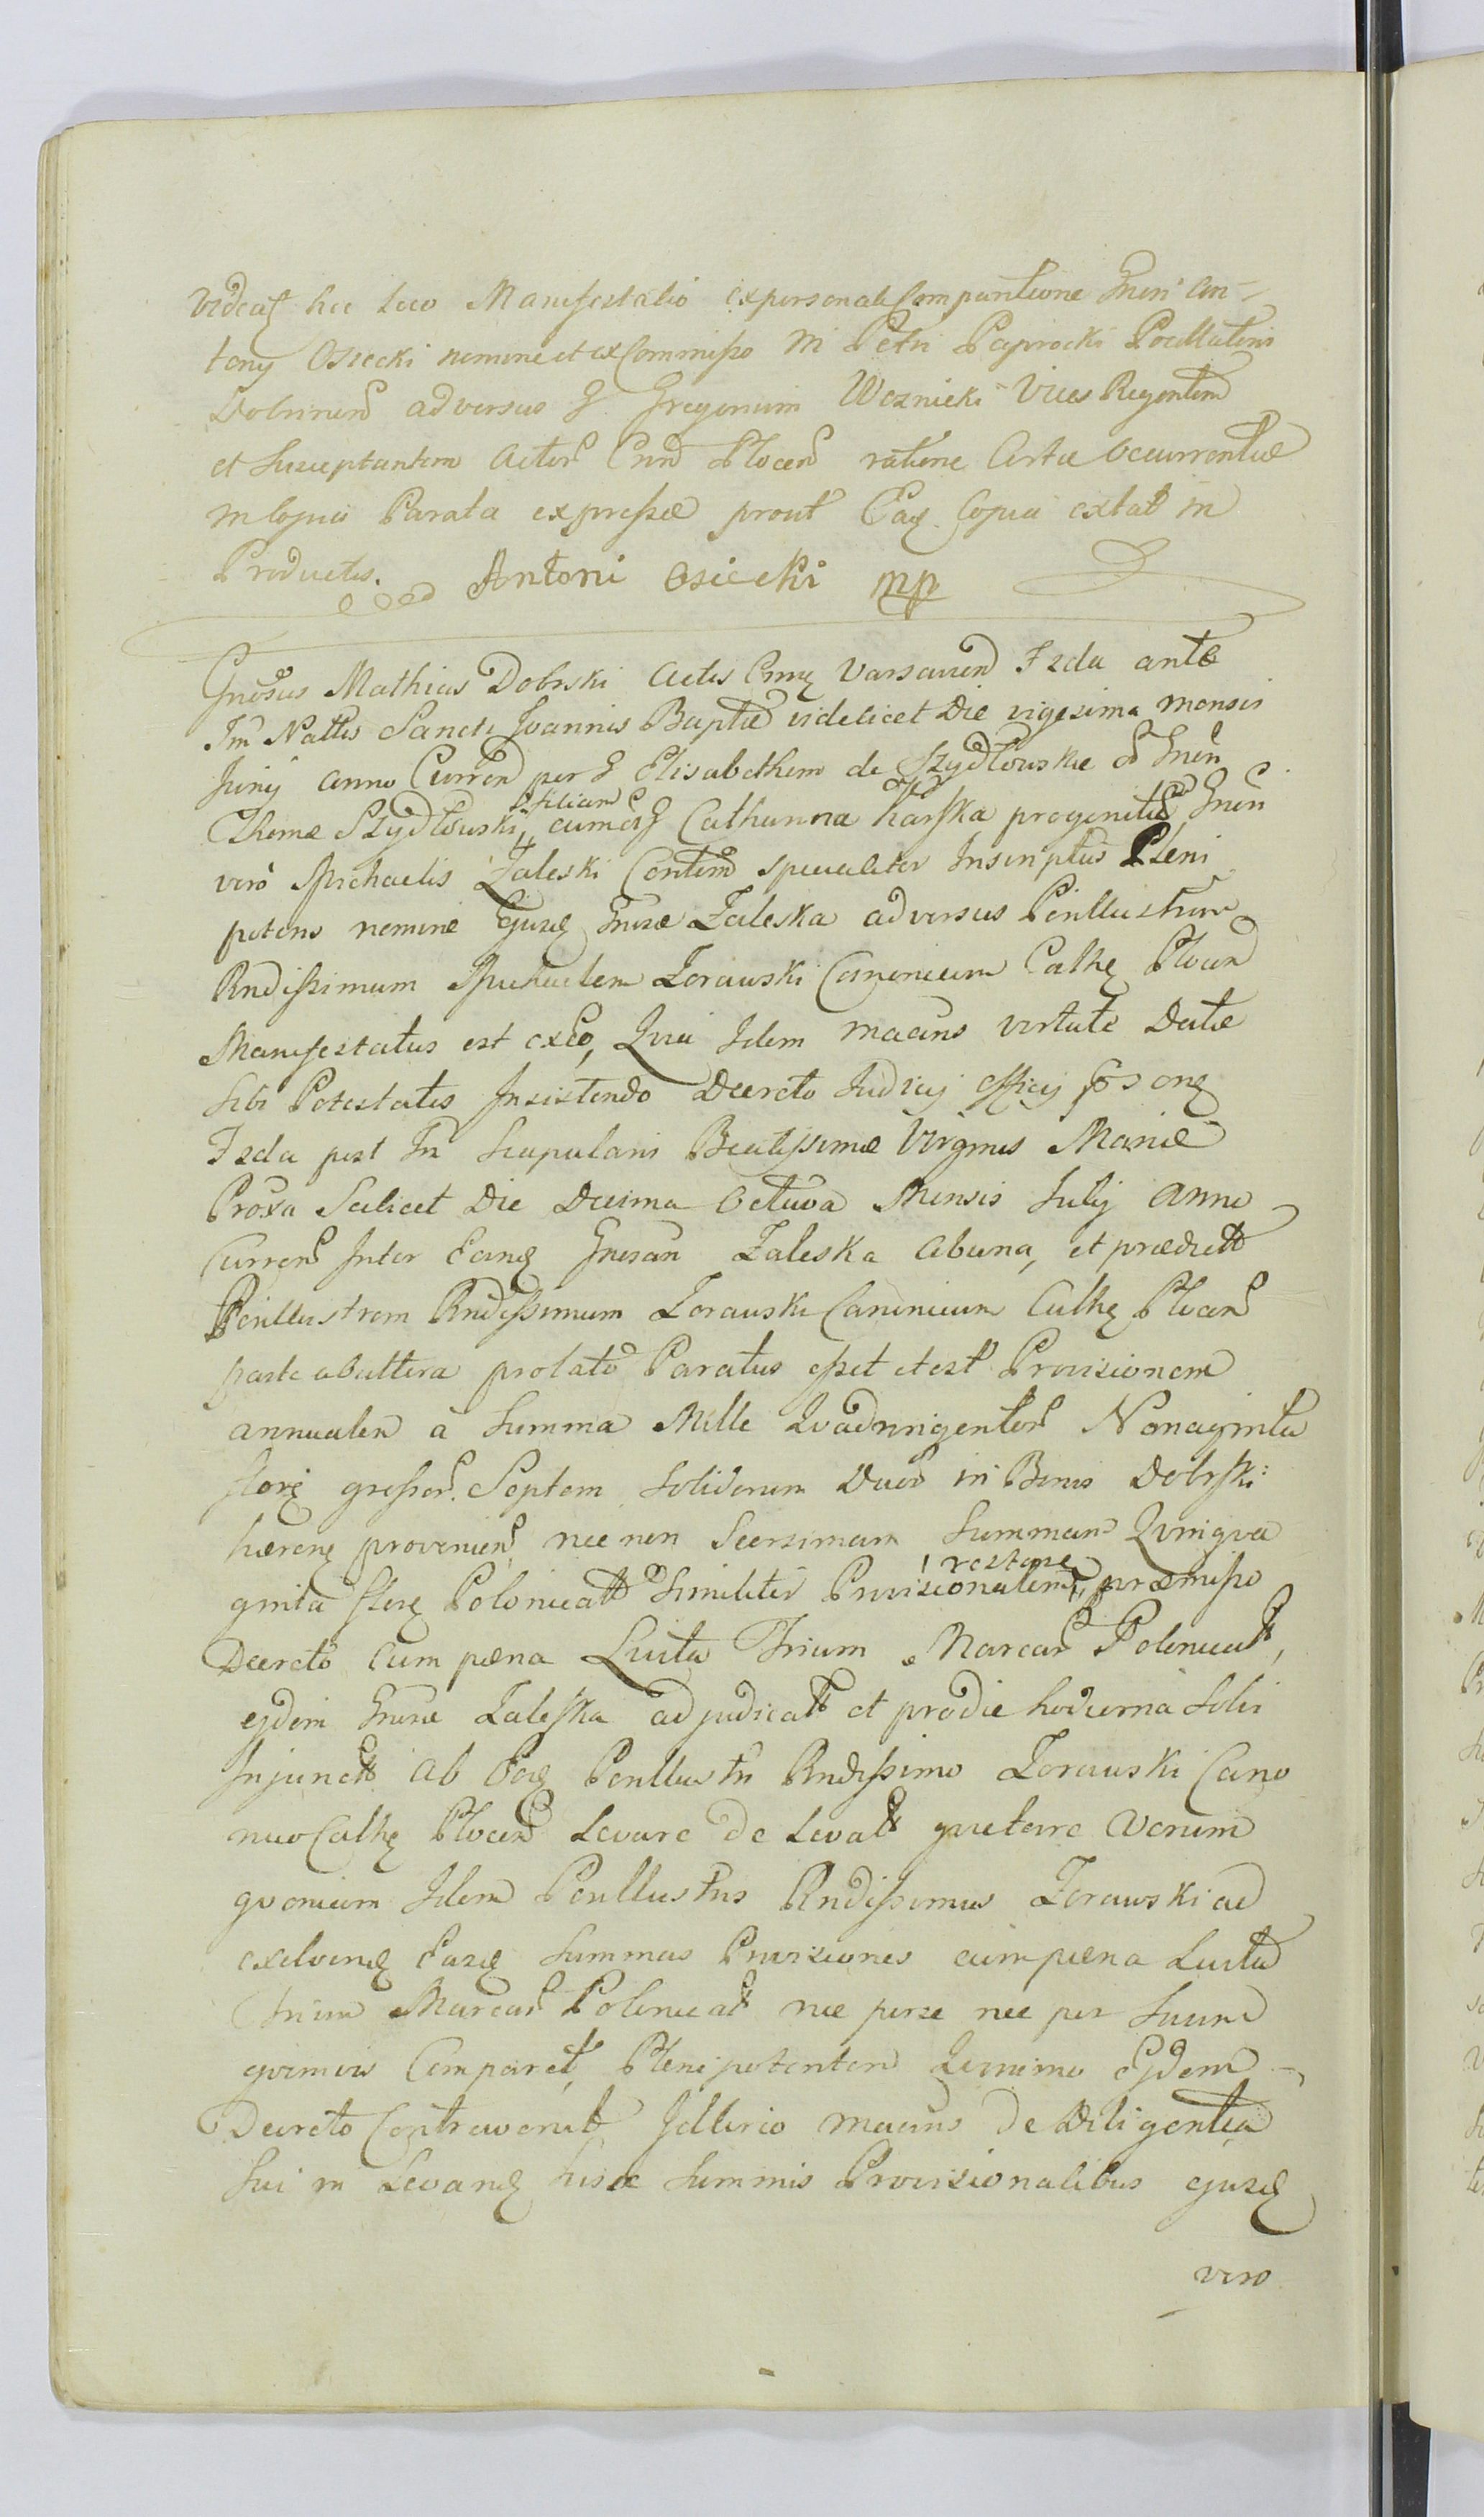 Videat hic loco Manifestatio ex personali Comparitione Gnosi An-
tonij Osiecki nomine et ex Commisso M Petri Paprocki Pocillatoris
Dobrinen adversus G Gregorium Woznicki Vices Regentem
et Susceptantem Actor Crim Plocen ratione Certæ Occurrentiæ
in Copia Parata expressæ prout Eaq Copia extat in
Productis. Antoni Osiecki mp
Gnosus Mathias Dobrski Actis Crim Varsavien Fzda ante
Fm Nattis Sancti Joannis Baptæ videlicet Die vigesima mensis
Junij anno Curren per G Elisabetham de Szydłowskie G Gnosi
Thomæ Szydłowski filiam cum G Catharina Karska progenitæ Gnosi
vero Michaelis Zaleski Contem specialiter Inscriptus Pleni
potens nomine Ejusq Gnosæ Zaleska adversus Perillustrem
Rndissimum Michaelem Zorawski Canonicum Cathe Plocen
Manifestatus est ex eo, Quia Idem Maans virtute Datæ
Sibi Potestatis Insistendo Decreto Judicij Officij
Fzda post Fm Scapularis Beatissimæ Virginis Mariæ
Proxa Scilicet Die Decima Octava Mensis Julij Anno
Curren Inter Eanq Gnosam Zaleska Ab una, et prædictt
Perillustrem Rndissimum Zorawski Canonicum Cathe Plocen
parte ab altera prolato Paratus esset et est Provisionem
annualem à Summa Mille Quadringentor Nonaginta
flore grossor. Septem Solidorum Duor in Bonis Dobrski
hæreng provenien, nec non Seorsimam Summam Quinqva
ginta flore Polonicatt Similiter Provisionalem restan, præmisso
Decreto Cum pæna Luita Trium Marcar Polonicat,
ejdem Gnosæ Zaleska adjudicatt et pro die hodierna Solvi
Injunctt Ab Eoq Perillustri Rndissimo Zorawski Cano
nico Cathe Plocen Levare De Levatt quietare Verum
qvoniam Idem Perillustris Rndissimus Zorawski ad
exolvend Easq Summas Provisiones cum pæna Luita
Trium Marcar Polonicat nec per se nec per Suum
qvemvis Comparet, Plenipotentem Quinimo Ejdem
Decreto Contravenit Ideo Maans De Diligentia
Sui in Levand hisce Summis Provisionalibus ejusq
vero